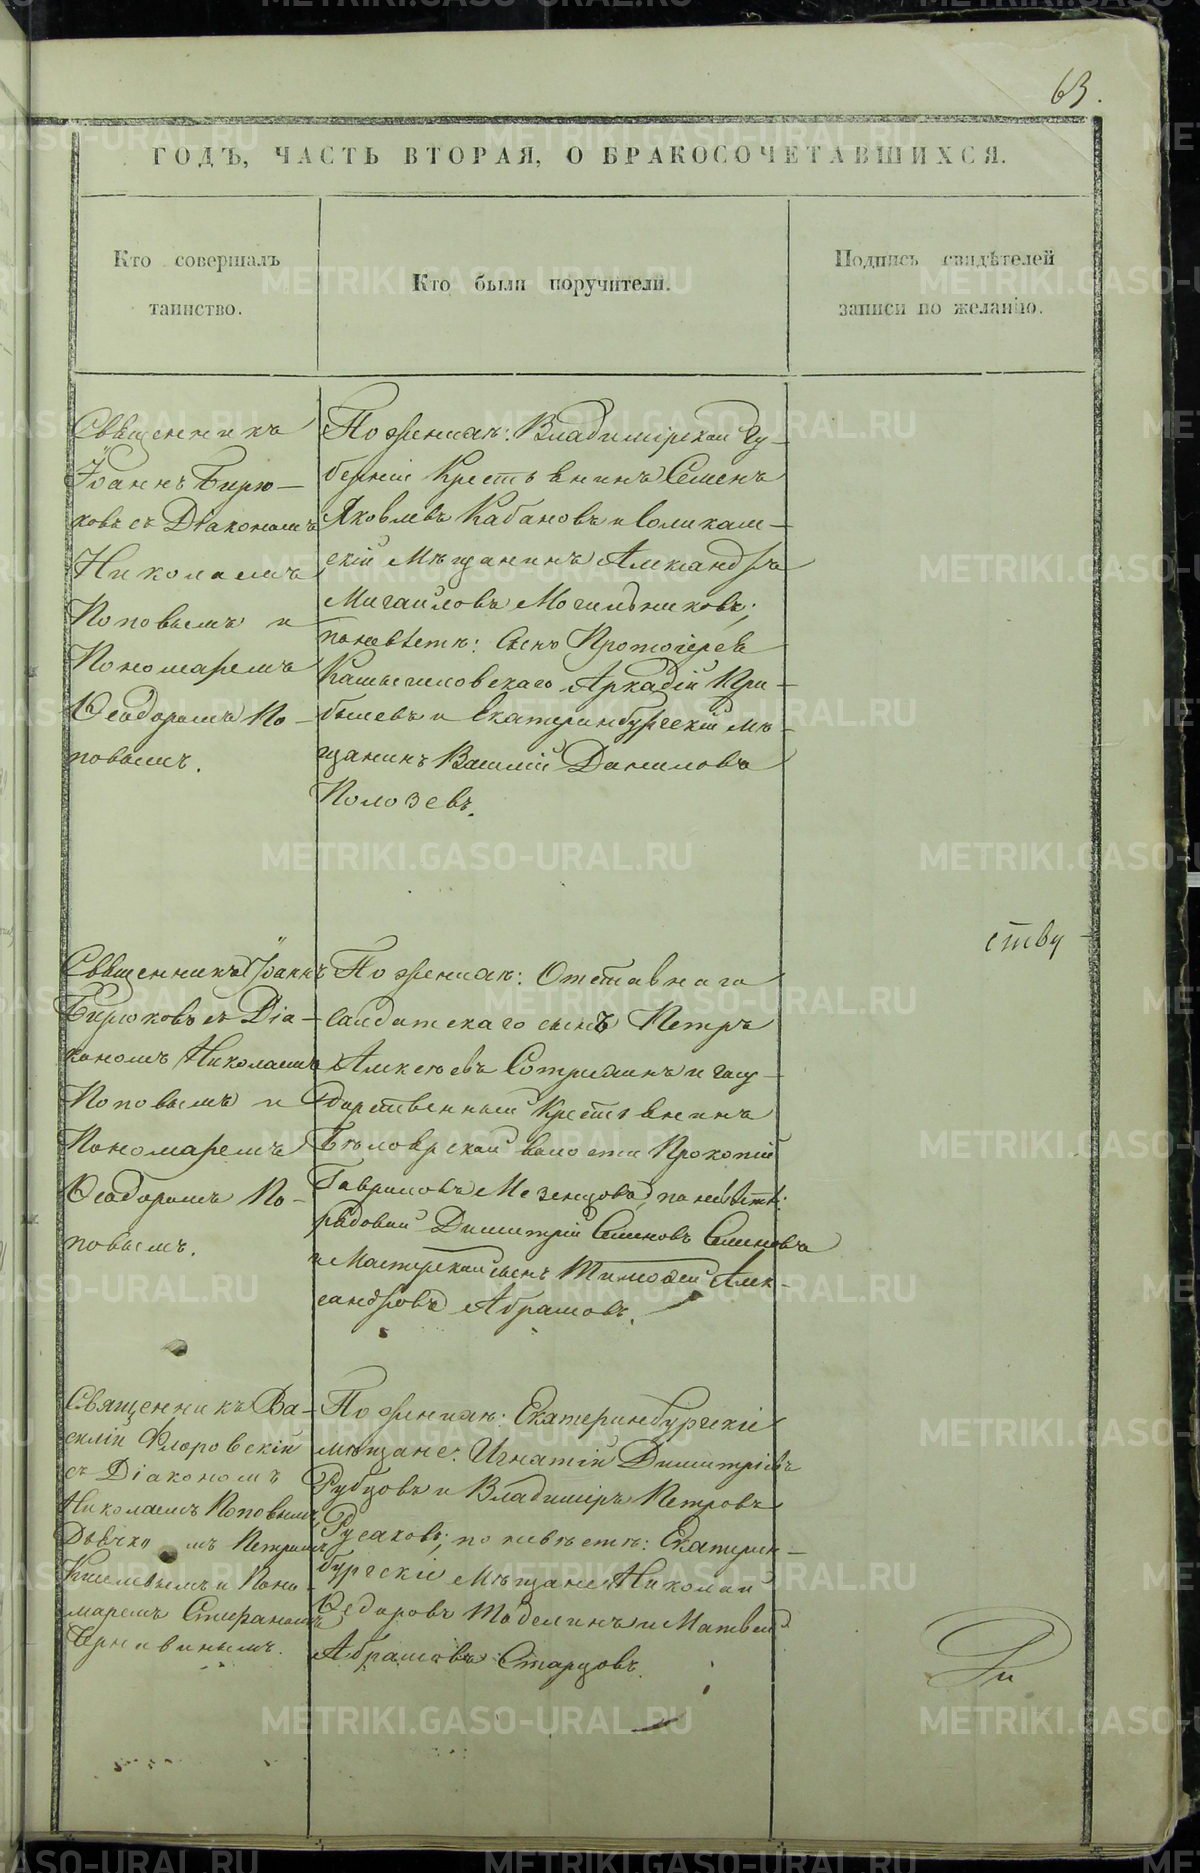 63.
ГОДЪ, ЧАСТЬ ВТОРАЯ, О БРАКОСОЧЕТАВШИХСЯ.
Кто совершалъ
таинство.
Кто были поручители.
Подпись свидѣтелей
записи по желанію.
Священникъ
Іоаннъ Бирю-
ковъ съ Діакономъ
Николаемъ
Поповымъ и
Пономаремъ
Ѳеодоромъ По-
повымъ.
По женихѣ: Владимірской Гу-
берніи Крестьянинъ Семенъ
Яковлевъ Кабановъ и Соликам-
скій Мѣщанинъ Александръ
Михайловъ Могильниковъ;
по невѣстѣ: Сынъ Протоіерея
Аркадій При-
былевъ и Екатеринбургскій мѣ-
щанинъ Василій Даниловъ
Полозевъ.
ству
Священникъ Іоаннъ
Бирюковъ съ Діа-
кономъ Николаемъ
Поповымъ и
Пономаремъ
Ѳеодоромъ По-
повымъ.
По женихѣ: Отставнаго
Солдатскаго сынъ Петръ
Алексѣевъ и госу-
дарственный Крестьянинъ
Бѣлоярской волости Прокопій
Гавриловъ Мезенцовъ; по невѣстѣ:
рядовой Димитрій Семеновъ Семеновъ
и Мастерской сынъ Тимоѳей Алек-
сандровъ Абрамовъ.
Священникъ Ва-
силій Флоровскій
съ Діакономъ
Николаемъ Поповымъ,
Дьячкомъ Петромъ
Киселевымъ и Поно-
маремъ Стефаномъ
По женихѣ: Екатеринбургскіе
мѣщане: Игнатій Димитріевъ
Рубцовъ и Владиміръ Петровъ
Русаковъ; по невѣстѣ: Екатерин-
бургскіе Мѣщане Николай
Ѳедоровъ и Матвей
Абрамовъ Старцовъ.
METRIKI.GASO-URAL.RU